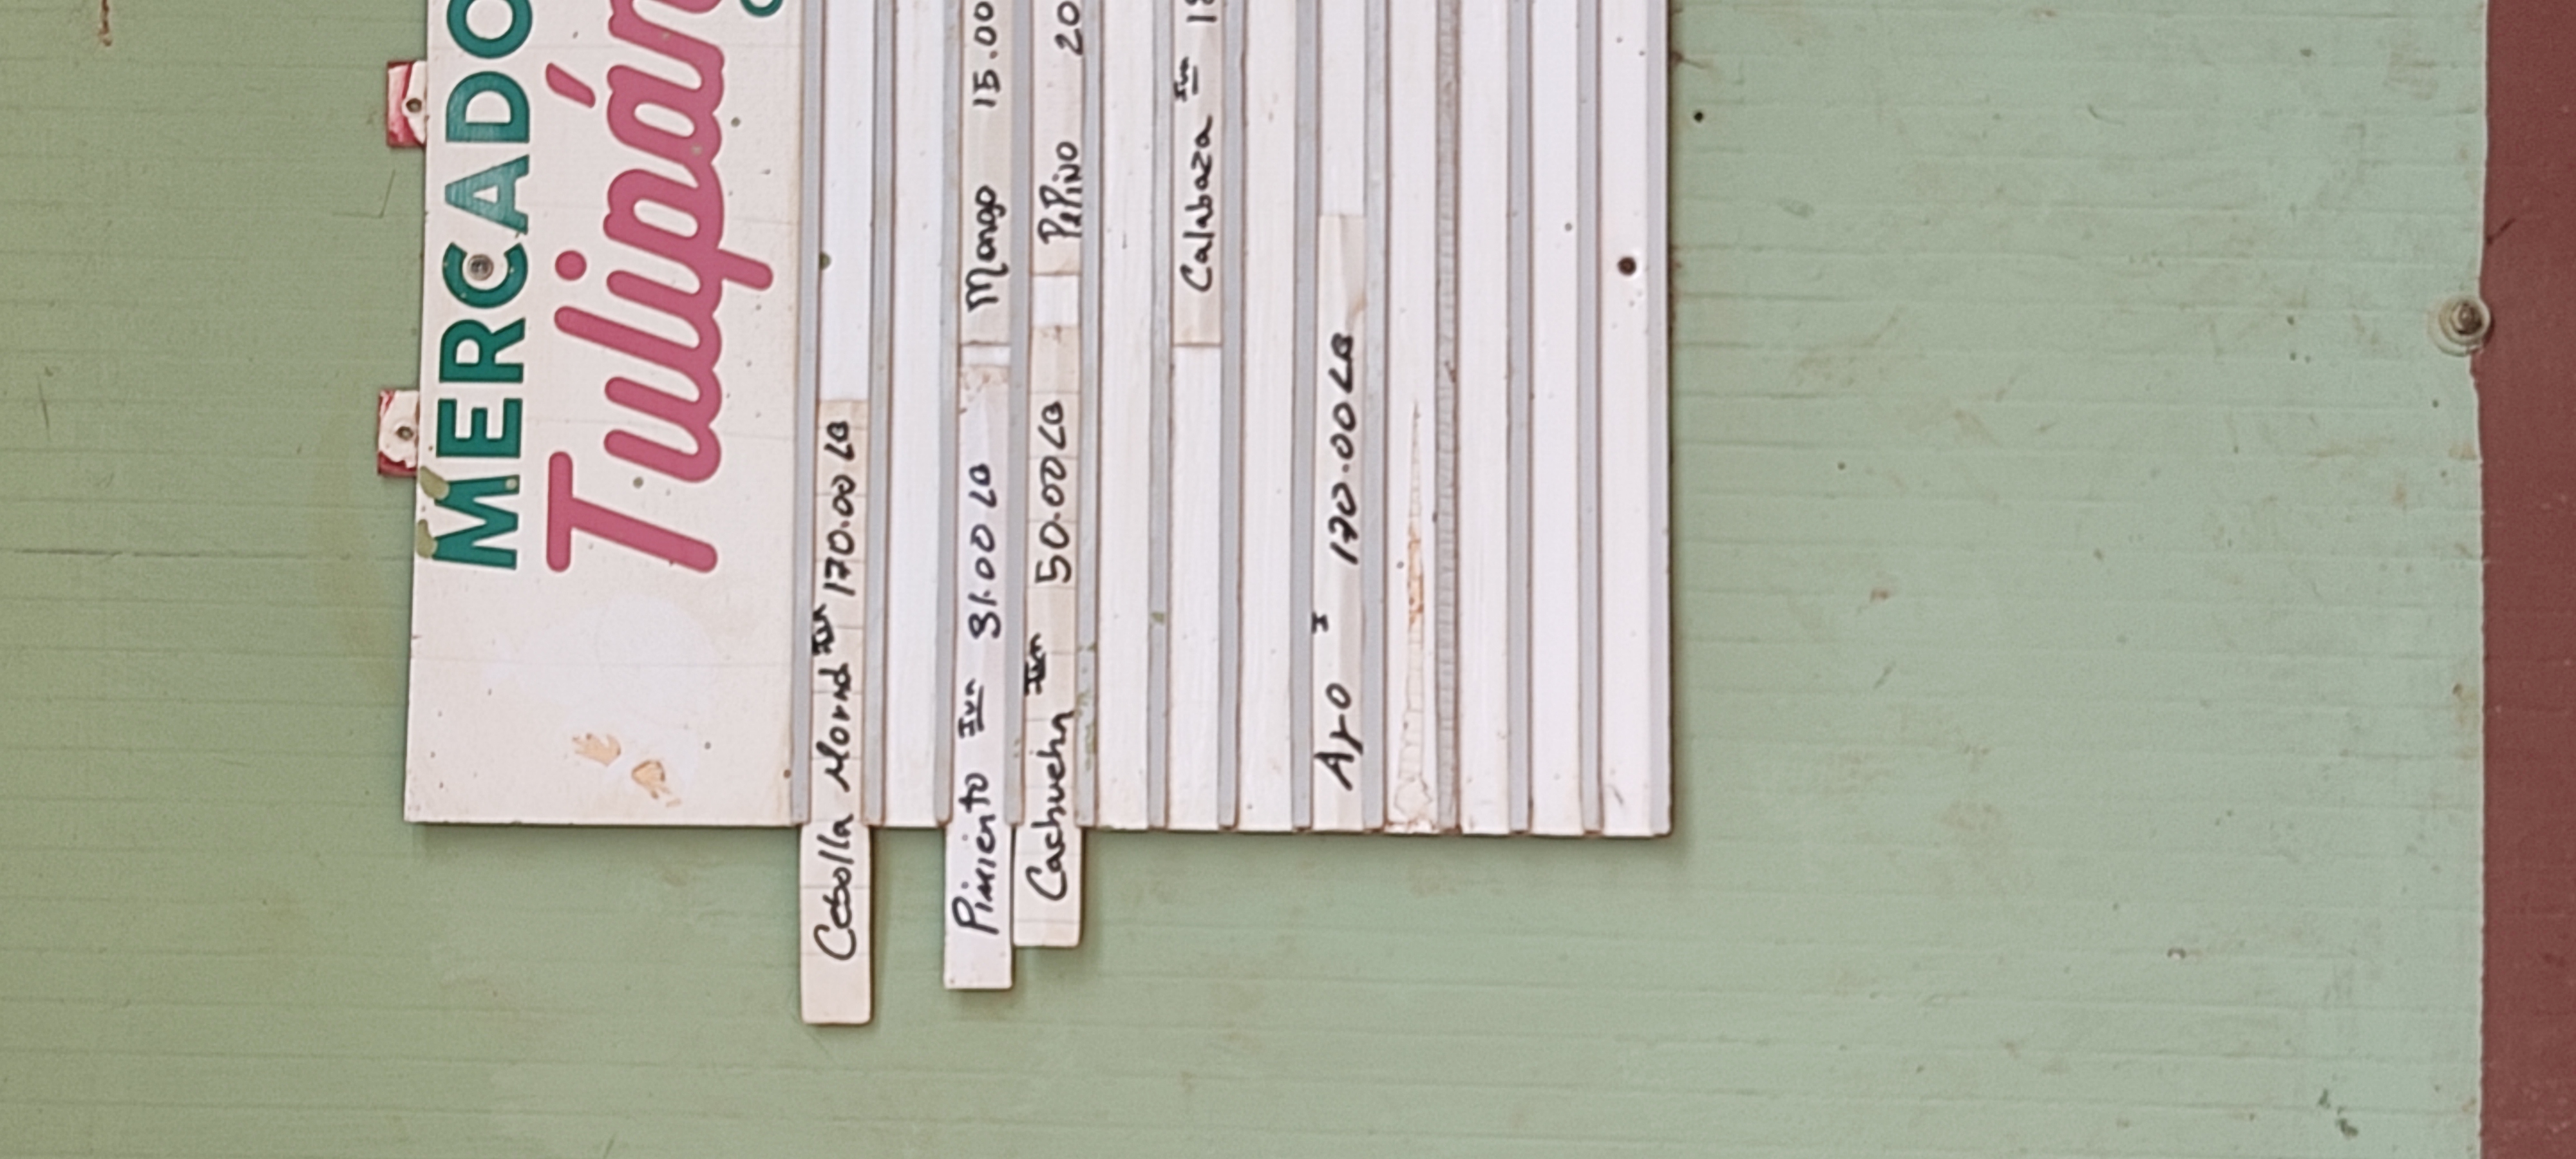 MERCADO
Tulipán
Cebolla Morad Iva 170.00 LB
Pimiento Iva 31.00 LB Mango 15.00
Cachucha Iva 50.00 LB PePiNo 20
Calabaza Iva 1
AJO I 170.00 LB